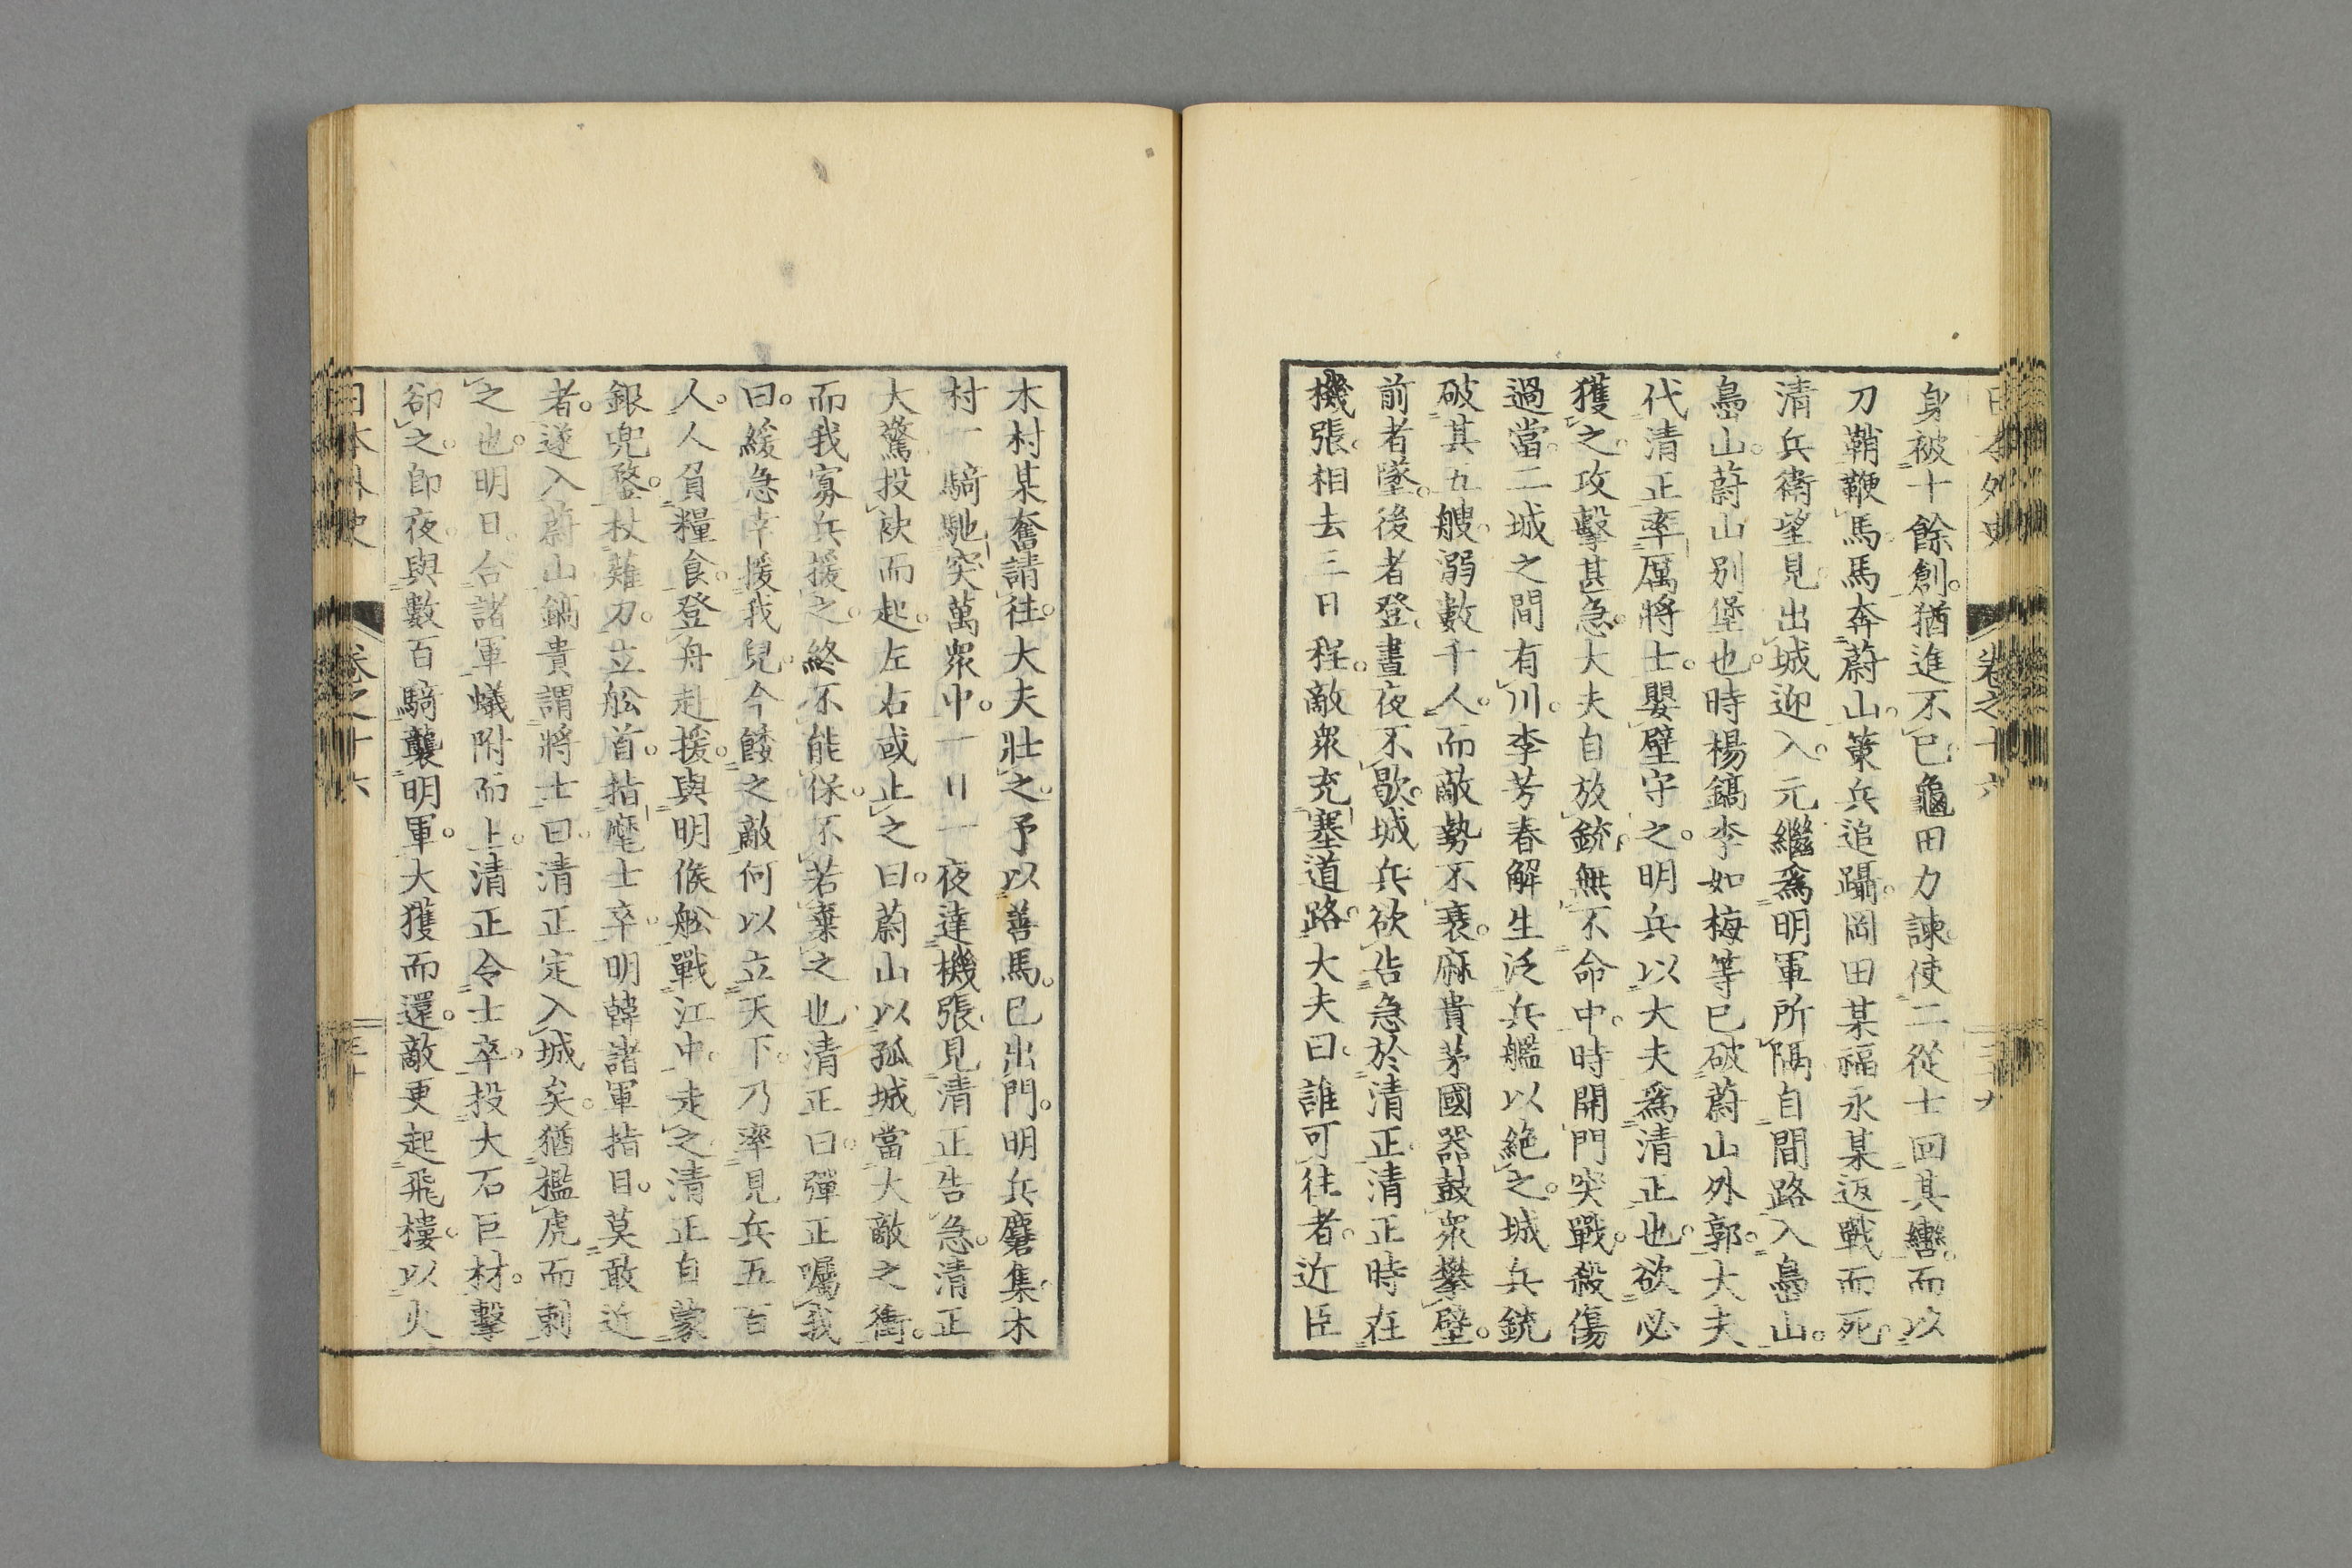 日本外史　卷之十六　二十九
身被十餘創。猶進不已。龜田力諫。使二從士回其轡。而以
刀鞘鞭馬。馬奔蔚山。策兵追躡。岡田某福永某返戰而死。
清兵衞望見。出城迎入。元繼爲明軍所隔。自間路入島山。
島山。蔚山別堡也。時楊鎬李如梅等已破蔚山外郭。大夫
代清正率厲將士。嬰壁守之。明兵以大夫爲清正也。欲必
獲之。攻擊甚急。大夫自放銃。無不命中。時開門突戰。殺傷
過當。二城之間有川。李芳春解生泛兵艦以絶之。城兵銃
破其五艘。溺數千人。而敵勢不衰。麻貴茅國器鼓衆攀壁。
前者墜。後者登。晝夜不歇。城兵欲告急於清正。清正時在
機張。相去三日程。敵衆充塞道路。大夫曰。誰可往者。近臣
木村某奮請往。大夫壯之。予以善馬。已出門。明兵麕集。木
村一騎馳突萬衆中。一日一夜達機張。見清正告急。清正
大驚。投袂而起。左右或止之曰。蔚山以孤城當大敵之衝。
而我寡兵援之。終不能保。不若棄之也。清正曰。彈正囑我
曰。緩急幸援我兒。今餒之敵。何以立天下。乃率見兵五百
人。人人負糧食。登舟赴援。與明候舩戰江中。走之。清正自蒙
銀兜鍪。杖薙刀。立舩首。指麾士卒。明韓諸軍指目。莫敢近
者。遂入蔚山。鎬貴謂將士曰。清正定入城矣。猶檻虎而刺
之也。明日。合諸軍蟻附而上。清正令士卒。投大石巨材。擊
卻之。即夜與數百騎襲明軍。大獲而還。敵更起飛樓。以火
日本外史　卷之十六　三十